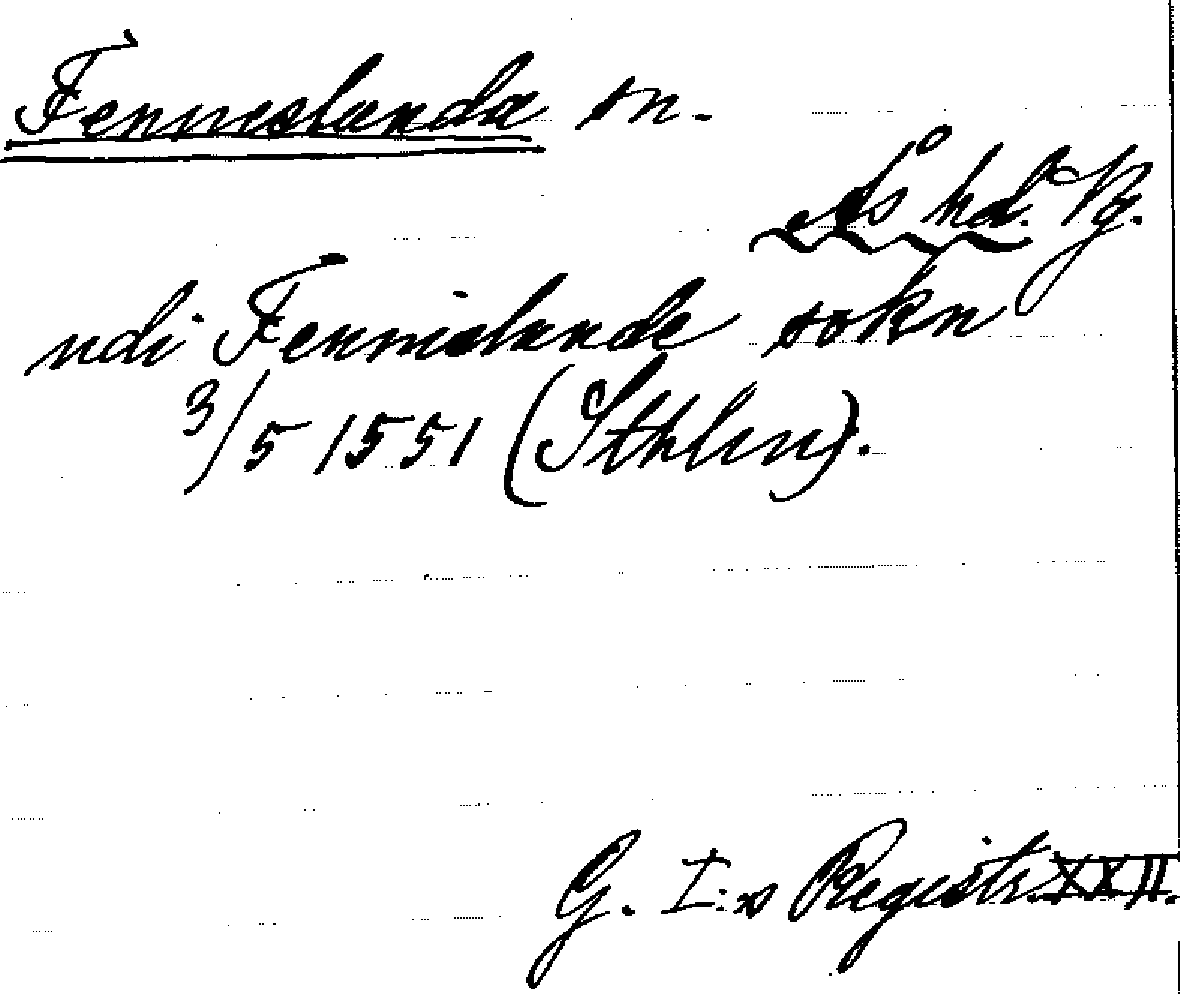 Fenneslanda sn.
Ås hd. Vg.
udi Fennislande sokn
3/5 1551 (Sthlm).
G. I:s Registr. XXII.